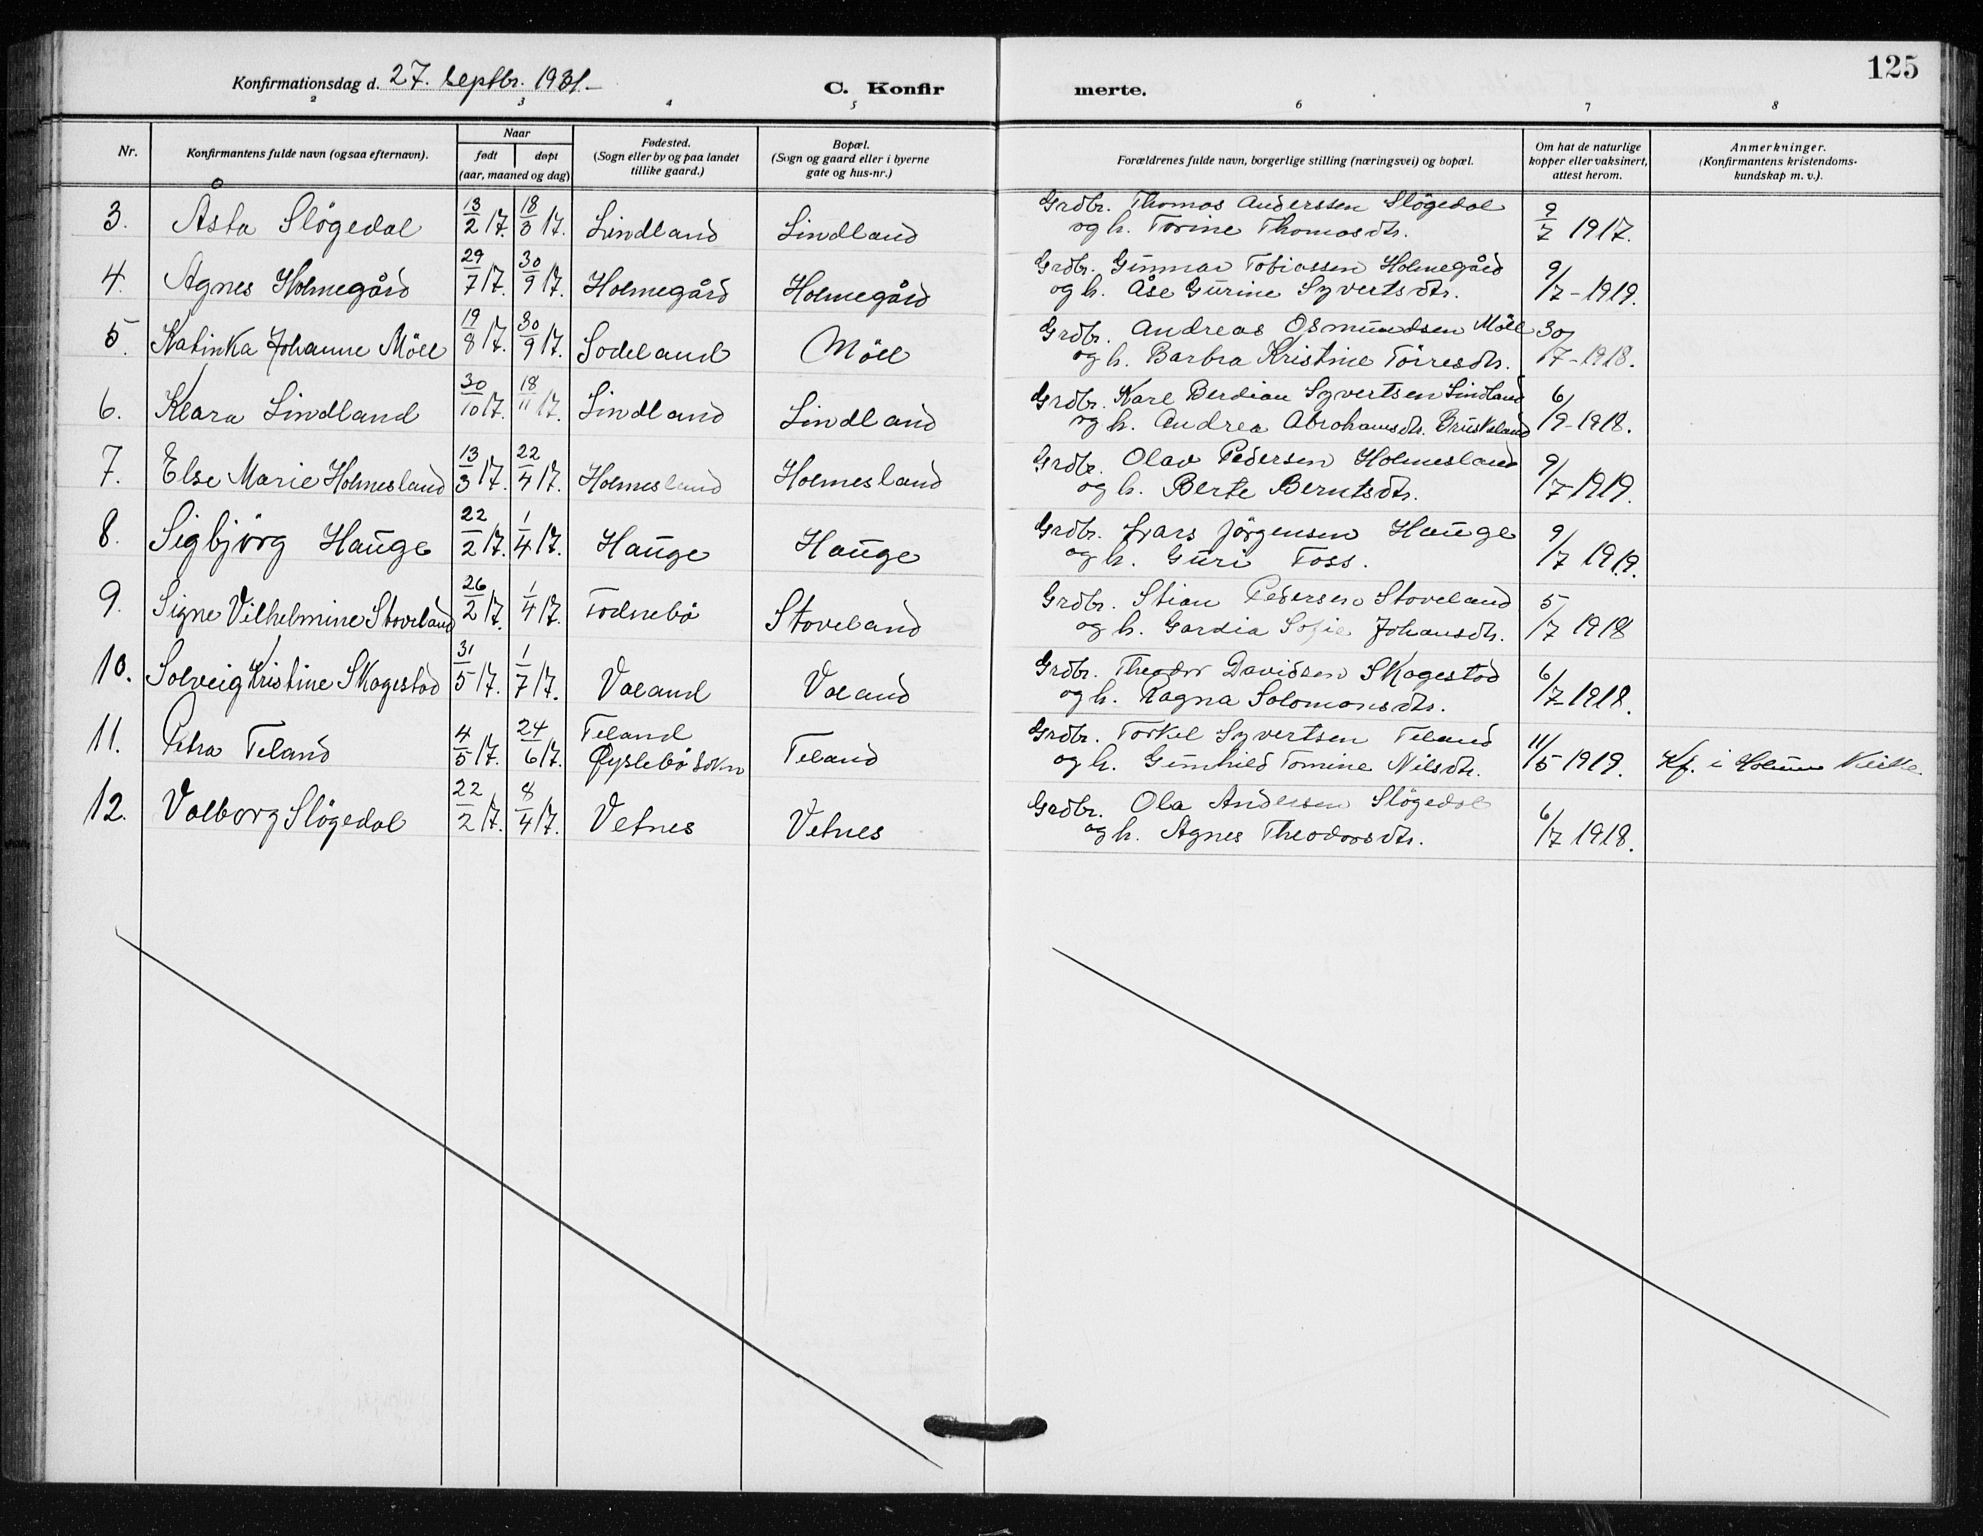 125
Konfirmationsdag d. 27. Septbr. 1931.
C. Konfirmerte.
2 3 4 5 6 7 8
Nr. Konfirmantens fulde navn (ogsaa efternavn). Naar født døpt (aar, maaned og dag) Fødested. (Sogn eller by og paa landet tillike gaard.) Bopæl. (Sogn og gaard eller i byerne gate og hus-nr.) Forældrenes fulde navn, borgerlige stilling (næringsvei) og bopæl. Om hat de naturlige kopper eller vaksinert, attest herom. Anmerkninger. (Konfirmantens kristendomskundskap m. v.).
3. Åsta Slögedal 13/2 17. 18/3 17. Lindland Lindland Grdbr. Thomas Anderssen Slögedal 9/7 1917.
og h. Torine Thomasdtr.
4. Agnes Holmegård 29/7 17. 30/9 17. Holmegård Holmegård Grdbr. Gunnar Tobiassen Holmegård 9/7 - 1919.
og h. Åse Gurine Syvertsdtr.
5. Katinka Johanne Möll 19/8 17. 30/9 17. Sodeland Möll Grdbr. Andreas Osmundsen Möll 30/7 - 1918.
og h. Barbra Kristine Törresdtr.
6. Klara Lindland 30/10 17. 18/11 17. Lindland Lindland Grdbr. Karl Berdian Syvertsen Lindland 6/9 - 1918.
og h. Andrea Abrahamsdtr. Bruskeland
7. Else Marie Holmesland 13/3 17. 22/4 17. Holmesland Holmesland Grdbr. Olav Pedersen Holmesland 9/7 1919.
og h. Berte Berntsdtr.
8. Sigbjörg Hauge 22/2 17. 1/4 17. Hauge Hauge Grdbr. Lars Jörgensen Hauge 9/7 1919.
og h. Guri Foss.
9. Signe Vilhelmine Stoveland 26/2 17. 1/4 17. Todnebö Stoveland Grdbr. Stian Pedersen Stoveland 5/7 1918
og h. Gardia Sofie Johansdtr.
10. Solveig Kristine Skagestad 31/5 17. 1/7 17. Valand Valand Grdbr. Theodor Davidsen Skagestad 6/7 - 1918.
og h. Ragna Salomonsdtr.
11. Petra Teland 4/5 17. 24/6 17. Teland Øyslebö sokn Teland Grdbr. Torkel Syvertsen Teland 11/5 1919. Kf. i Holum Kirke
og h. Gunhild Tomine Nilsdtr.
12. Valborg Slögedal 22/2 17. 8/4 17. Vetnes Vetnes Grdbr. Ola Andersen Slögedal 6/7 1918.
og h. Agnes Theodorsdtr.